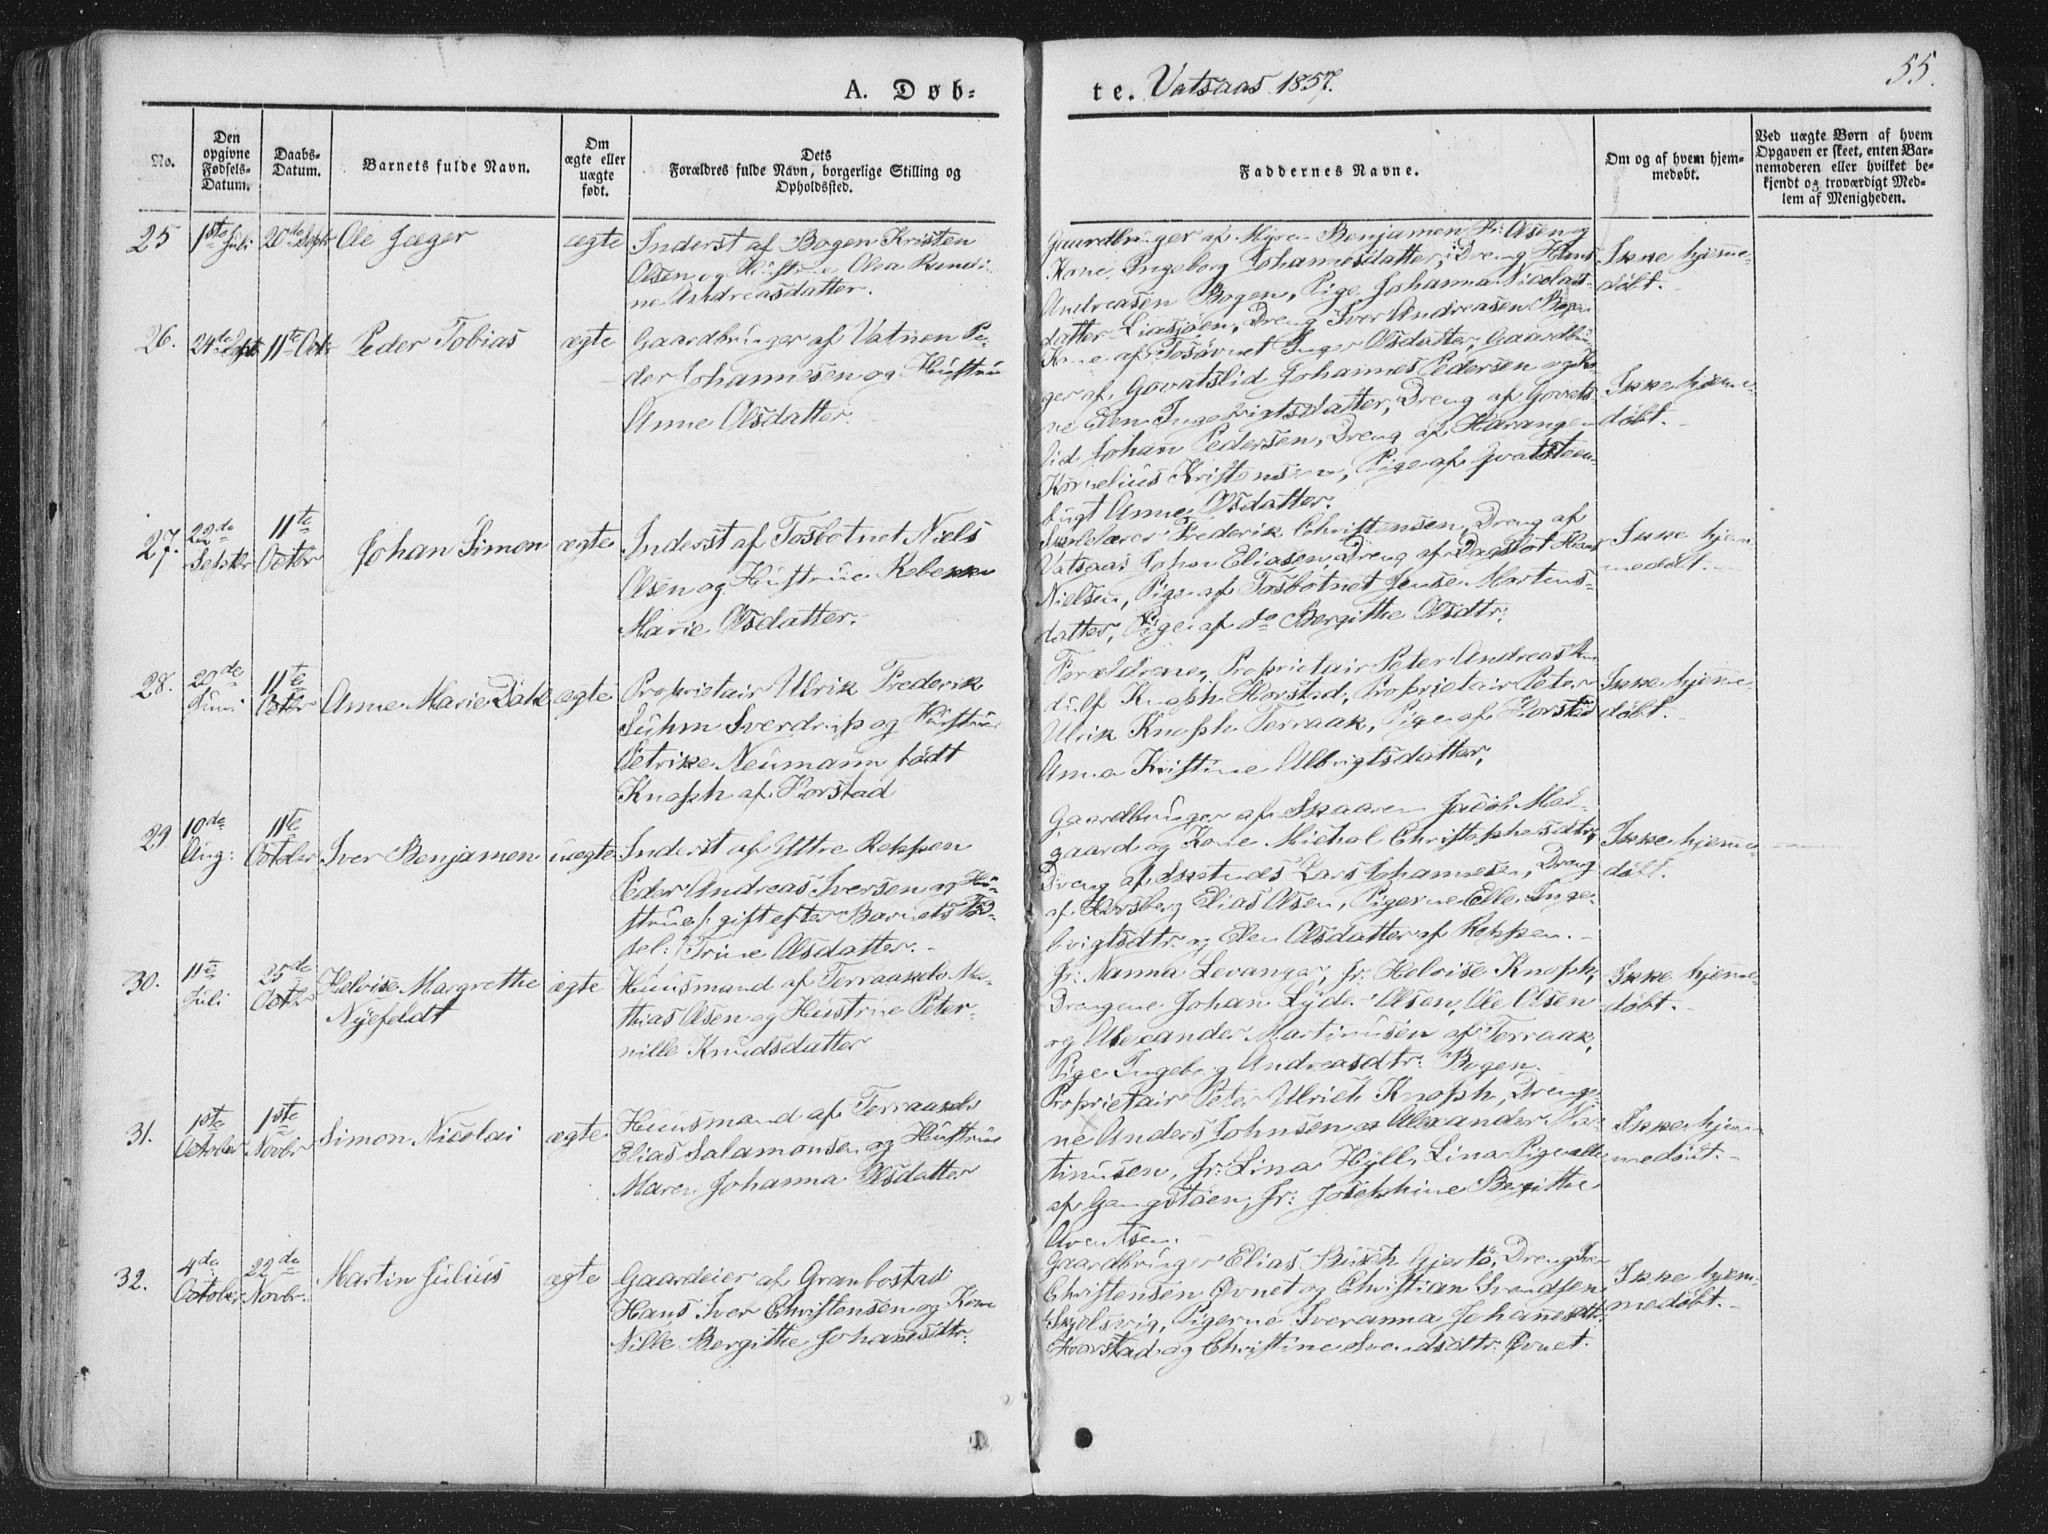 55.
A. Døb-
te. Vatsaas 1857.
No.
Den opgivne Fødsels-Datum.
Daabs-Datum.
Barnets fulde Navn.
Om ægte eller uægte født.
Dets
Forældres fulde Navn, borgerlige Stilling og
Opholdsted.
Faddernes Navne.
Om og af hvem hjem-
medøbt.
Ved uægte Børn af hvem
Opgaven er skeet, enten Bar-
nemoderen eller hvilket be-
kjendt og troværdigt Med-
lem af Menigheden.
25 1ste Juli 20de Septr Ole Jæger ægte
Inderst af Bogen Kristen
Olsen og Hustrue Olea
ne Andreasdatter.
Gaardbruger af Benjamen Olsen og
Kone Ingeborg Johannesdatter, Dreng Hans
Andreasen Bogen, Pige Johanna Nicolais-
datter Liasjøen, Dreng Iver Andreasen Bogen
Ikke hjemme-
døbt.
26. 24de Septr 11te Octr Peder Tobias ægte
Gaardbruger af Vatnen Pe-
der Johannesen og Hustrue
Anne Olsdatter.
Kone af Tosøvnet Inger Olsdatter, Gaardbru-
ger af Govatslid Johannes Pedersen og Ko-
ne Elen Ingebrigtsdatter, Dreng af Govats-
lid Johan Pedersen, Dreng af Harangen
Kornelius Kristensen, Pige af
Anne Olsdatter.
Ikke hjemme-
døbt.
27. 22de Septbr 11te Octbr Johan Simon ægte
Inderst af Tosbotnet Niels
Olsen og Hustrue Rebekka
Marie Olsdatter.
Skolelærer Frederik Christensen, Dreng af
Vatsaas Johan Eliasen, Dreng af Dagslot Hans
Nielsen, Pige af Tosbotnet Jense Martins-
datter, Pige af do Bergithe Olsdtr:
Ikke hjem-
medøbt.
28. 29de Juni 11te Octbr Anne Marie Dahl ægte
Proprietair Ulrik Frederik
Suhm Sverdrup og Hustrue
Petrike Neumann født
Knoph af Horstad
Forældrene, Proprietair Peter Andreas
Knoph Horstad, Proprietair Peter
Ulrik Knoph Terraak, Pige af Horstad
Anna Kristine Albrigtsdatter,
Ikke hjemme-
døbt.
29 10de Aug: 11te October Iver Benjamen uægte
Inderst af Yttre Reppen
Peder Andreas Iversen og Hu-
strue /: gift efter Barnets Fød-
sel:/ Trine Olsdatter.
Gaardbruger af Skaaren Jacob Mel-
gaard og Kone Michal Christophersdtr,
Dreng af Lars Johannesen, Dreng
af Horsberg Elias Olsen, Pigerne Elle Inge-
brigtsdtr og Elen Olsdatter af Reppen.
Ikke hjemme-
døbt.
30. 11te Juli 25de Octbr Heloise Margrethe
Nyefeldt ægte
Huusmand af Terraak Ma-
thias Olsen og Hustrue Peter-
nille Knudsdatter
Jr: Nanna Levanger, Jr. Heloise Knoph,
Drengene Johan Lyder Olsen, Ole Olsen
og Alexander Martinusen af Terraak,
Pige Ingeborg Andreasdtr: Bogen.
Ikke hjemme-
døbt.
31. 1ste October 1ste Novbr Simon Nicolai ægte
Huusmand af Terraak
Elias Salamonsen og Hustrue
Maren Johanna Olsdatter
Proprietair Peter Ulrich Knoph, Drenge-
ne Anders Johnsen og Alexander Mar-
tinusen, Jr: Lina Hyll, Lina Pige alle
af Gangstøen, Jr: Josephine Begithe
Arentsen.
Ikke hjem-
medøbt.
32. 4de October 22de Novbr. Martin Julius ægte
Gaardeier af Granbostad
Hans Iver Christensen og Kone
Nille Bergithe Johansdtr:
Gaardbruger Elias Busch Gjertø, Dreng Iver
Christensen Øvnet og Christian Svendsen
Skjelsvig, Pigerne Iveranna Johannesdtr
Horstad og Christine Svendsdtr: Øvnet.
Ikke hjem-
medøbt.